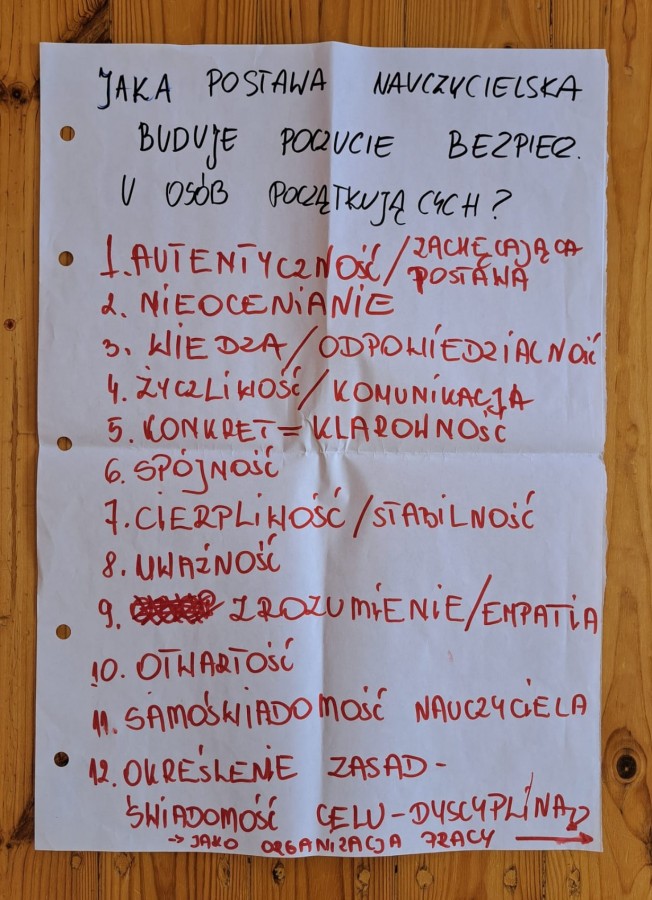 JAKA POSTAWA NAUCZYCIELSKA
BUDUJE POCZUCIE BEZPIECZ.
U OSÓB POCZĄTKUJĄCYCH?
1. AUTENTYCZNOŚĆ/ZACHĘCAJĄCA
POSTAWA
2. NIEOCENIANIE
3. WIEDZA/ODPOWIEDZIALNOŚĆ
4. ŻYCZLIWOŚĆ/KOMUNIKACJA
5. KONKRET = KLAROWNOŚĆ
6. SPÓJNOŚĆ
7. CIERPLIWOŚĆ/STABILNOŚĆ
8. UWAŻNOŚĆ
9. ZROZUMIENIE/EMPATIA
10. OTWARTOŚĆ
11. SAMOŚWIADOMOŚĆ NAUCZYCIELA
12. OKREŚLENIE ZASAD -
ŚWIADOMOŚĆ CELU - DYSCYPLINA
→ JAKO ORGANIZACJA PRACY →